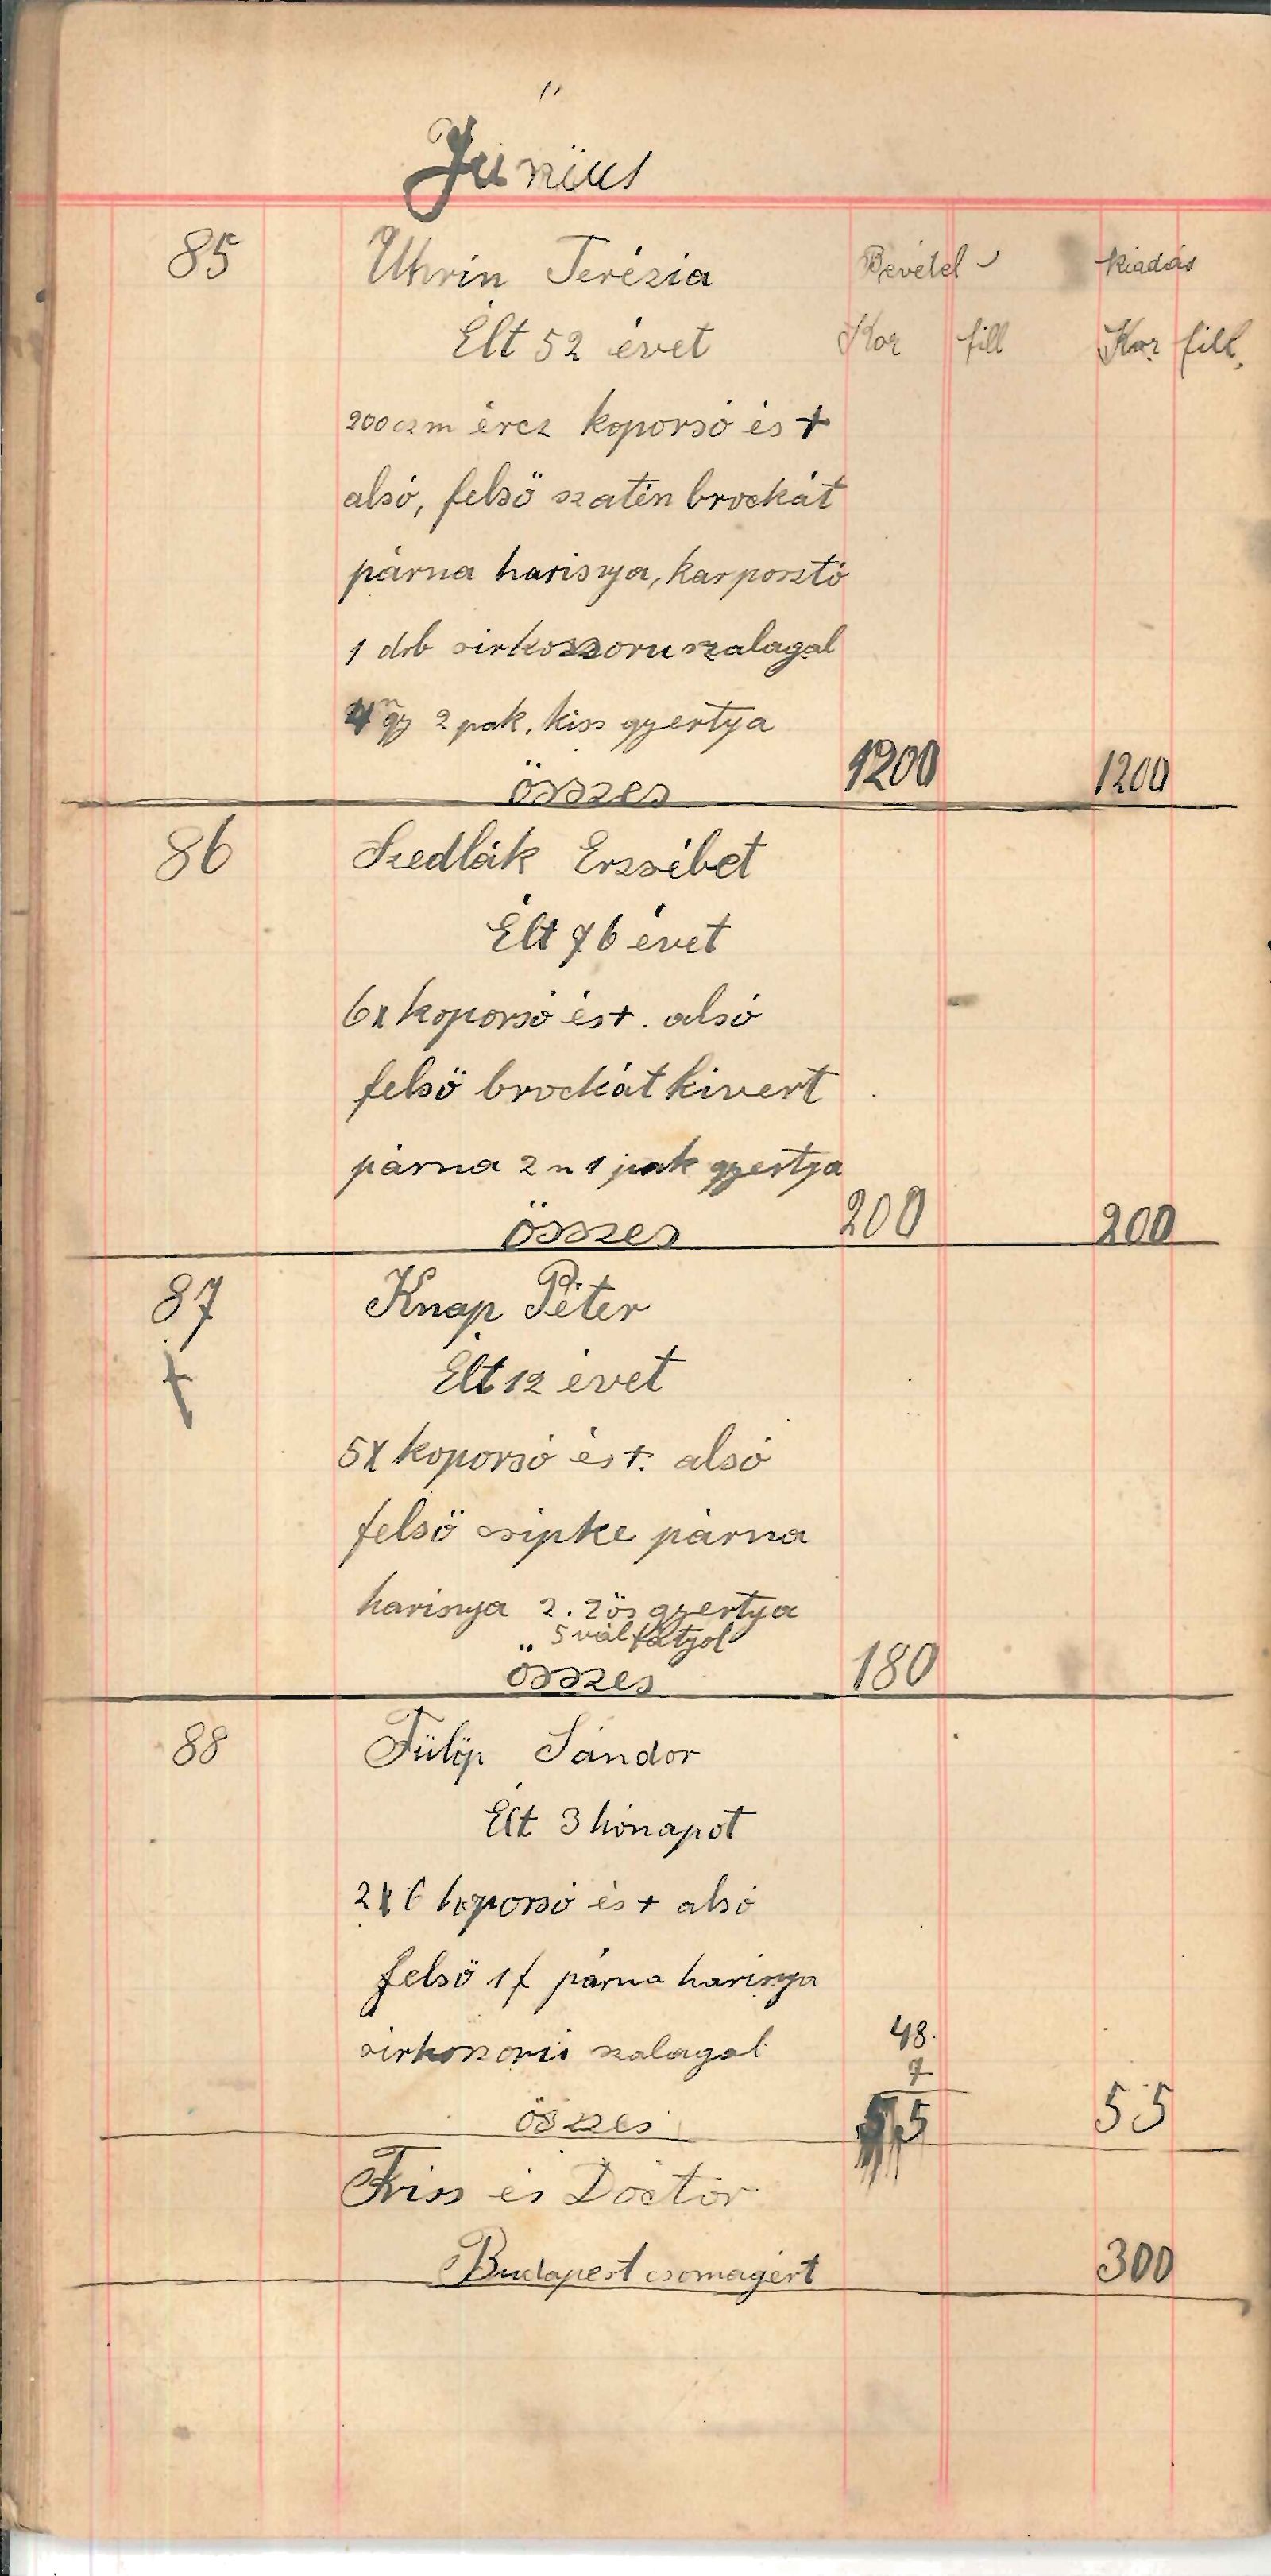 Június
85 Uhrin Terézia Bevétel kiadás
Élt 52 évet Kor fill Kor fill.
200 czm ércz koporsó és +
alsó, felső szatén brockát
párna harisnya, karposztó
1 drb sirkoszoru szalagal
2 pak. kiss gyertya
összes 1200 1200
86 Szedlák Erzsébet
Élt 76 évet
6x koporsó és +. alsó
felső brockát kivert
párna 2 n 1 pak gyertya
összes 200 200
87 Knap Péter
Élt 12 évet
5x koporsó és +. alsó
felső csipke párna
harisnya 2. 2ös gyertya
5 vál fátyol
összes 180
88 Fülöp Sándor
Élt 3 hónapot
2x6 koporsó és + alsó
felső 1f párna harisnya
48.
sirkoszorú szalagal
7
összes 55 55
Friss és Doctor
Budapest csomagért 300